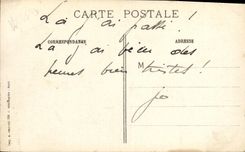 CARTE POSTALE
Là j'ai passé !
CORRESPONDANCE
ADRESSE
Là j'ai vécu des
M
heures bien tristes !
Jo